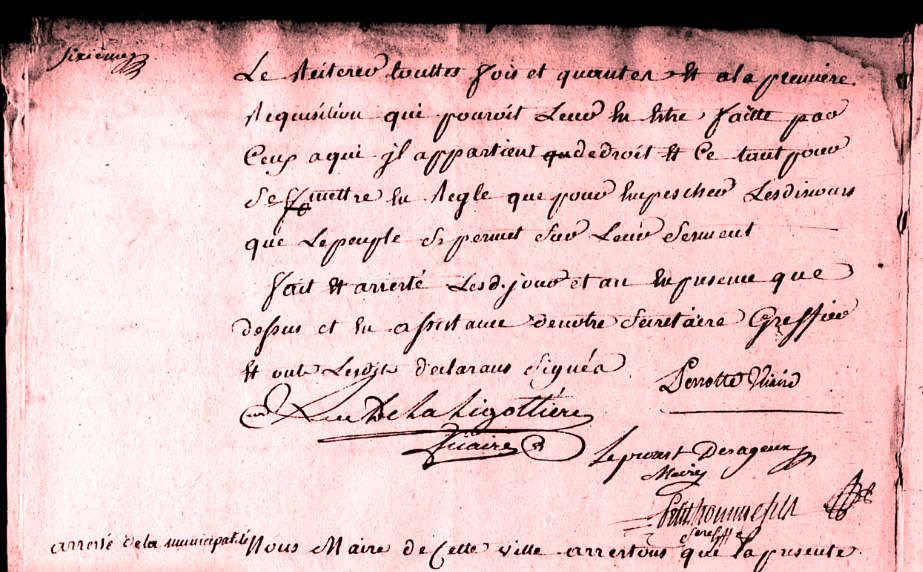 sixième
Le Reiterer touttes fois et quantes Et ala premiere
Requisition qui pouroit Leur En Estre faitte par
Ceux aqui jl appartient qu dedroit Et Ce tant pour
se mettre En Regle que pour Empescher Lesdiscours
que Lepeuple se permet sur Leur serment
fait Et arresté Lesd. jour et an En presence que
dessus et En assistance denotre Secretaire Greffier
Et ont Lesdits declarans signéa
Perrotte Vicaire
De La Ligottiere
Vicaire
Leprovost Desageux
Maire
Petithomme
Secre Greff
arresté dela municipalité Nous Maire de Cette ville arrestons que la presente